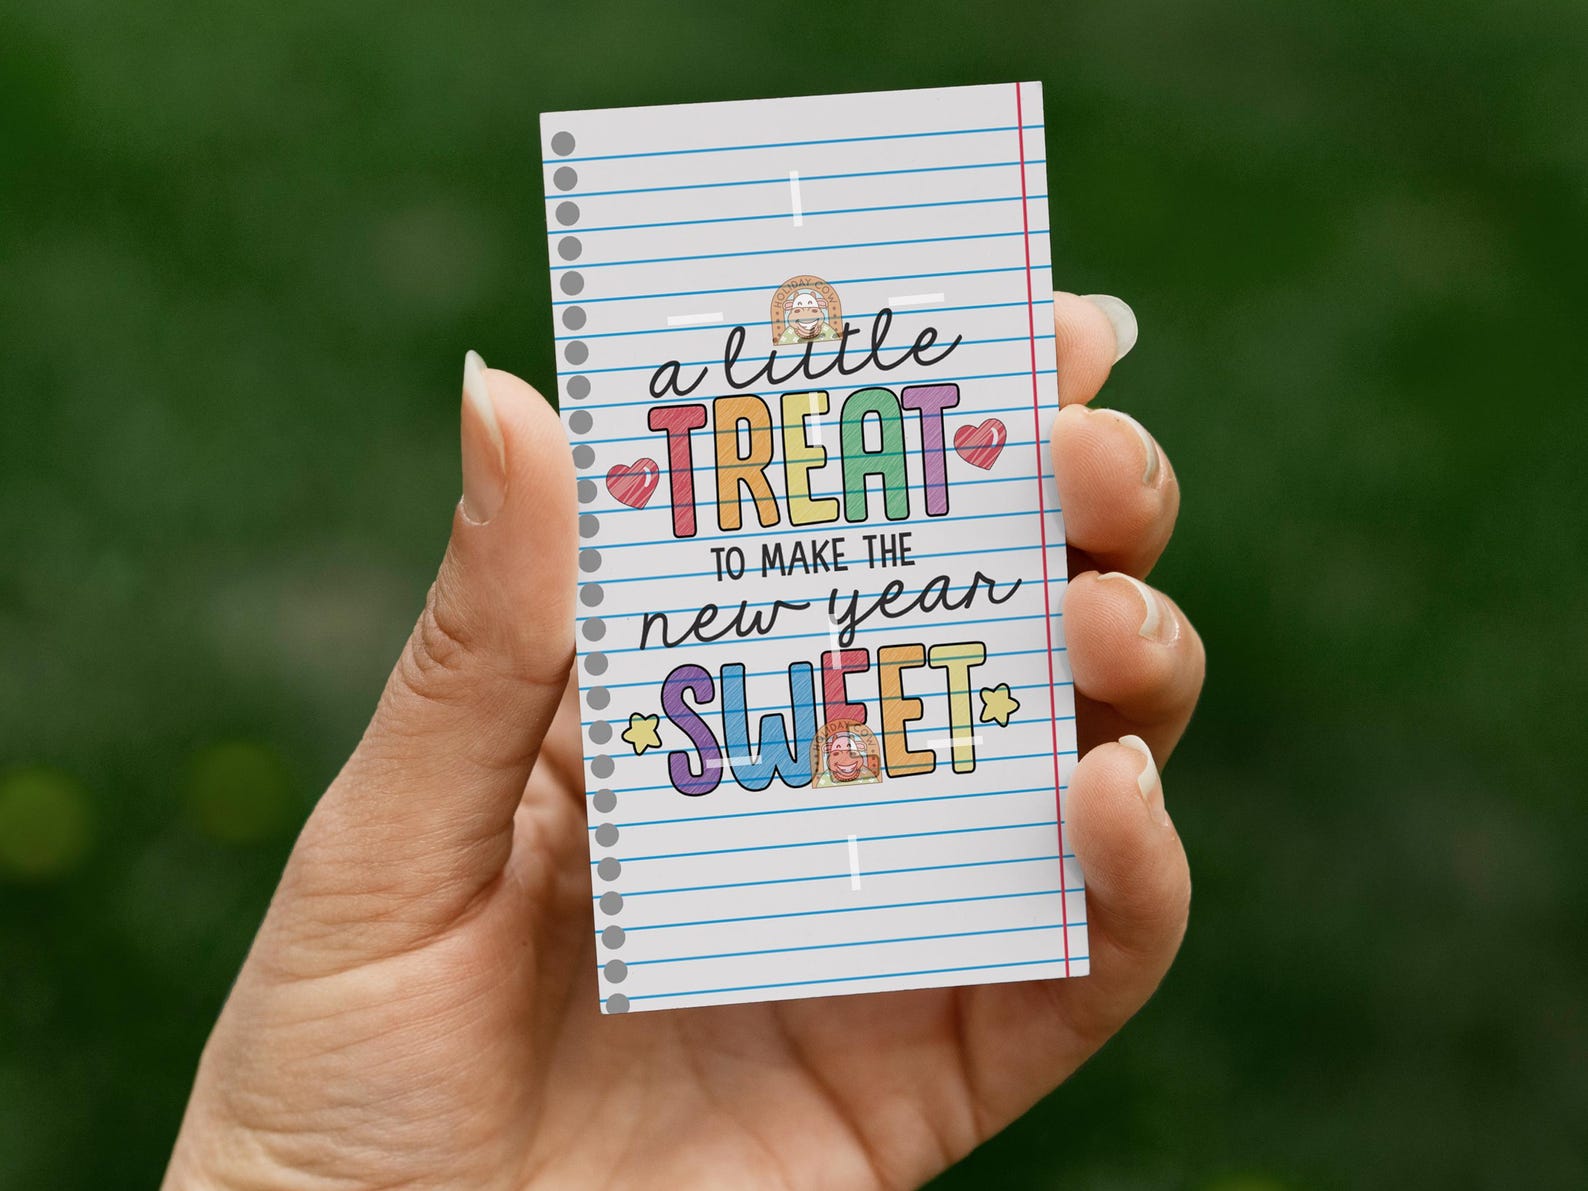 HOLIDAY COW
a little
TREAT
TO MAKE THE
new year
SWEET
HOLIDAY COW